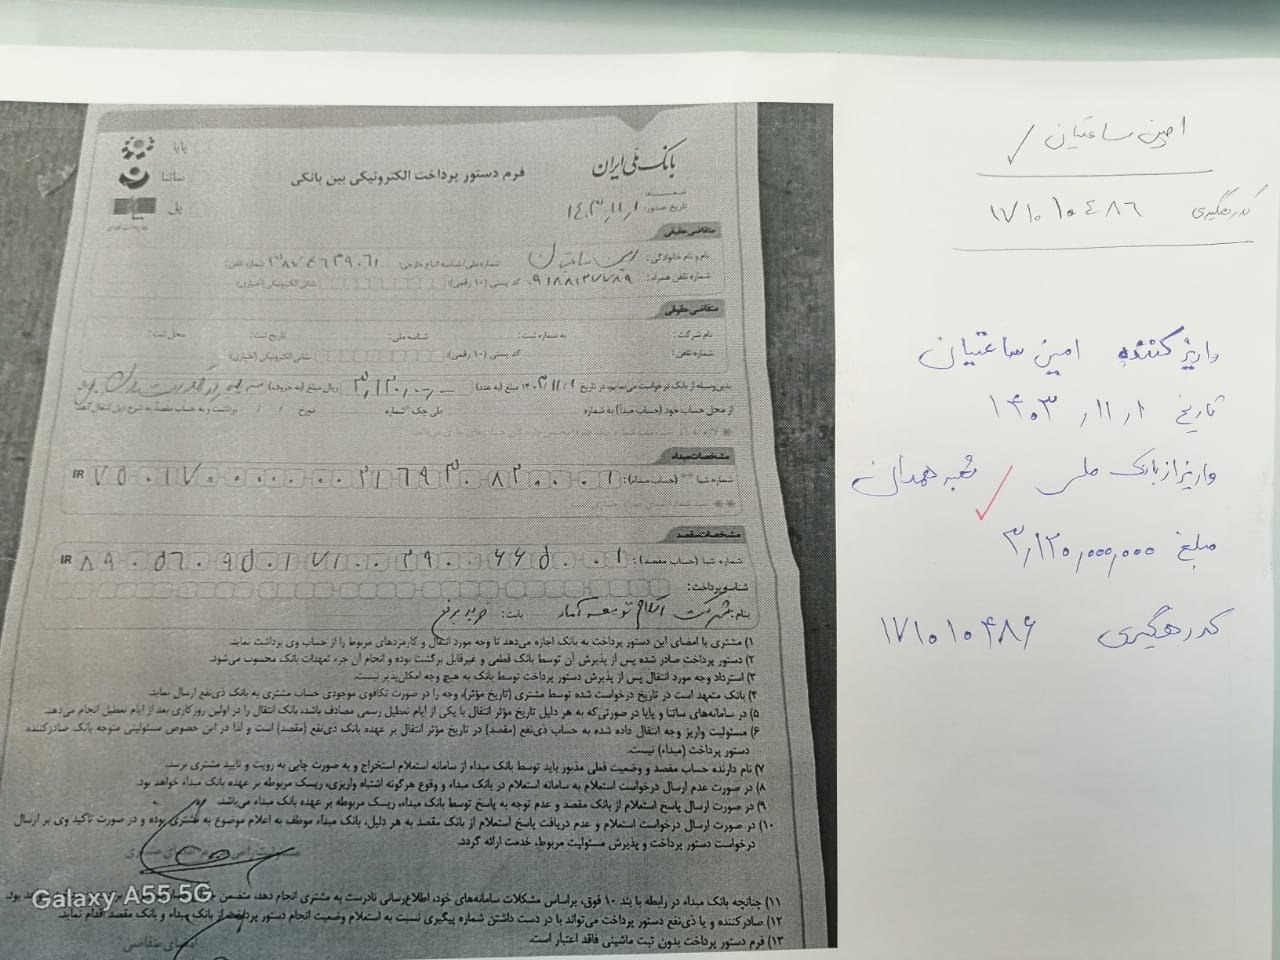 امین ساعتیان
کد رهگیری ۱۷۱۰۱۰۴۸۶
واریز کننده امین ساعتیان
تاریخ ۱۴۰۳/۱۱/۱
واریز از بانک ملی شعبه همدان
مبلغ ۳,۱۲۰,۰۰۰,۰۰۰
کد رهگیری ۱۷۱۰۱۰۴۸۶
بانک ملی ایران
فرم دستور پرداخت الکترونیکی بین بانکی
پایا
ساتنا
پل
شماره:
تاریخ صدور: ۱۴۰۳/۱۱/۱
متقاضی حقیقی
نام و نام خانوادگی: امین ساعتیان شماره ملی/شناسه اتباع خارجی: شماره تلفن:
شماره تلفن همراه: ۰۹۱۸۸۱۲۷۷۸۹ کد پستی (۱۰ رقمی): نشانی الکترونیکی (اختیاری):
متقاضی حقوقی
نام شرکت: به شماره ثبت: شناسه ملی: تاریخ ثبت: محل ثبت:
شماره تلفن: کد پستی (۱۰ رقمی): نشانی الکترونیکی (اختیاری):
بدین‌وسیله از بانک درخواست می‌نمایم، در تاریخ ۱۴۰۳/۱۱/۱ مبلغ (به عدد) ریال مبلغ (به حروف)
از محل حساب خود (حساب مبدأ) به شماره طی چک شماره مورخ / / برداشت و به حساب مقصد به شرح ذیل انتقال دهد
مشخصات مبداء
شماره شبا ** (حساب مبداء): IR
مشخصات مقصد
شماره شبا (حساب مقصد): IR ۸۹۰۵۶۰۹۵۰۱۷۱۰۰۲۹۰۰۶۶۵۰۰۱
شناسه پرداخت:
بنام: شرکت توسعه آمار بابت:
۱) مشتری با امضای این دستور پرداخت به بانک اجازه می‌دهد تا وجه مورد انتقال و کارمزدهای مربوط را از حساب وی برداشت نماید.
۲) دستور پرداخت صادر شده پس از پذیرش آن توسط بانک قطعی و غیرقابل برگشت بوده و انجام آن جزء تعهدات بانک محسوب می‌شود.
۳) استرداد وجه مورد انتقال پس از پذیرش دستور پرداخت توسط بانک به هیچ وجه امکان‌پذیر نیست.
۴) بانک متعهد است در تاریخ درخواست شده توسط مشتری (تاریخ مؤثر)، وجه را در صورت تکافوی موجودی حساب مشتری به بانک ذی‌نفع ارسال نماید.
۵) در سامانه‌های ساتنا و پایا در صورتی‌که به هر دلیل تاریخ مؤثر انتقال با یکی از ایام تعطیل رسمی مصادف باشد، بانک انتقال را در اولین روزکاری بعد از ایام تعطیل انجام می‌دهد.
۶) مسئولیت واریز وجه انتقال داده شده به حساب ذی‌نفع (مقصد) در تاریخ مؤثر انتقال بر عهده بانک ذی‌نفع (مقصد) است و لذا در این خصوص مسئولیتی متوجه بانک صادرکننده
دستور پرداخت (مبداء) نیست.
۷) نام دارنده حساب مقصد و وضعیت فعلی مذبور باید توسط بانک مبداء از سامانه استعلام استخراج و به صورت چاپی به رویت و تایید مشتری برسد.
۸) در صورت عدم ارسال درخواست استعلام به سامانه استعلام در بانک مبداء و وقوع هرگونه اشتباه واریزی، ریسک مربوطه بر عهده بانک مبداء خواهد بود.
۹) در صورت ارسال پاسخ استعلام از بانک مقصد و عدم توجه به پاسخ توسط بانک مبداء، ریسک مربوطه بر عهده بانک مبداء می‌باشد.
۱۰) در صورت ارسال درخواست استعلام و عدم دریافت پاسخ استعلام از بانک مقصد به هر دلیل، بانک مبداء موظف به اعلام موضوع به مشتری بوده و در صورت تاکید وی بر ارسال
درخواست دستور پرداخت و پذیرش مسئولیت مربوط، خدمت ارائه گردد.
۱۱) چنانچه بانک مبداء در رابطه با بند ۱۰ فوق، براساس مشکلات سامانه‌های خود، اطلاع‌رسانی نادرست به مشتری انجام دهد، متضمن
۱۲) صادرکننده و یا ذی‌نفع دستور پرداخت می‌تواند با در دست داشتن شماره پیگیری نسبت به استعلام وضعیت انجام دستور پرداخت از بانک مبداء و بانک مقصد اقدام نماید.
۱۳) فرم دستور پرداخت بدون ثبت ماشینی فاقد اعتبار است.
امضای متقاضی
Galaxy A55 5G